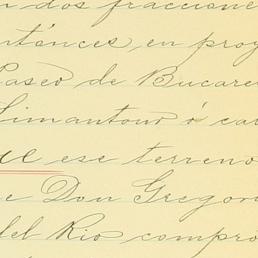 n dos fraccione
ntónces, en proy
Paseo de Bucare
Limantour ó ca
ue ese terreno
e Don Gregor
del Rio compro